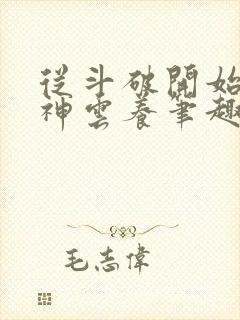 從斗破開始
神雲養筆趣
毛志偉